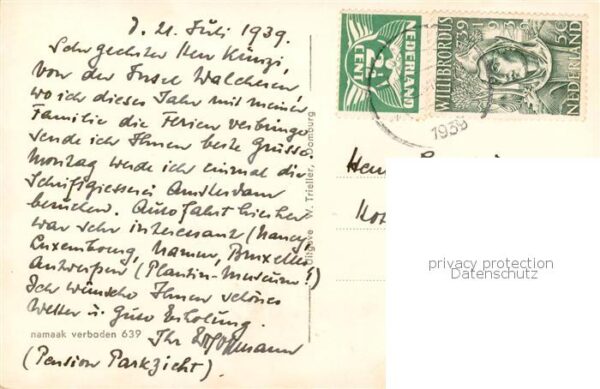 D. 21. Juli 1939.
Sehr geehrter Herr Künzi,
von der Insel Walcheren,
wo ich dieses Jahr mit meiner
Familie die Ferien verbringe
sende ich Ihnen beste Grüsse.
Montag werde ich einmal die
Schriftgiesserei Amsterdam
besuchen. Autofahrt hierher
war sehr interessant (Nancy,
Luxembourg, Namur, Bruxelles
Antwerpen (Plantin-Museum!)
Ich wünsche Ihnen schönes
Wetter u. gute Erholung.
Ihr
(Pension Parkzicht).
namaak verboden 639
Uitgave W. Trieller, Domburg
NEDERLAND
2½
CENT
WILLIBRORDUS
739
1939
5C
NEDERLAND
1939
privacy protection
Datenschutz